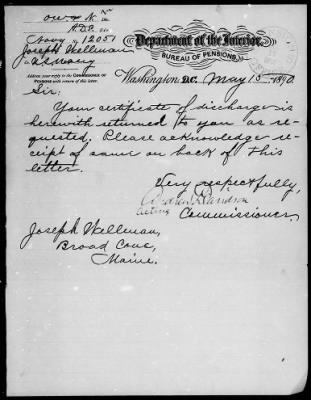 O.W. & N. Div.
Navy No. 12051
Joseph Wellman
U.S. Navy
Address your reply to the COMMISSIONER OF
PENSIONS with return of this letter.
Department of the Interior,
BUREAU OF PENSIONS,
Washington, D.C. May 15-1890.
Sir:
Your certificate of discharge is
herewith returned to you as re-
quested. Please acknowledge re-
ceipt of same on back of this
letter.
Very respectfully,
Andrew Davidson
Acting Commissioner.
Joseph Wellman,
Broad Cove,
Maine.